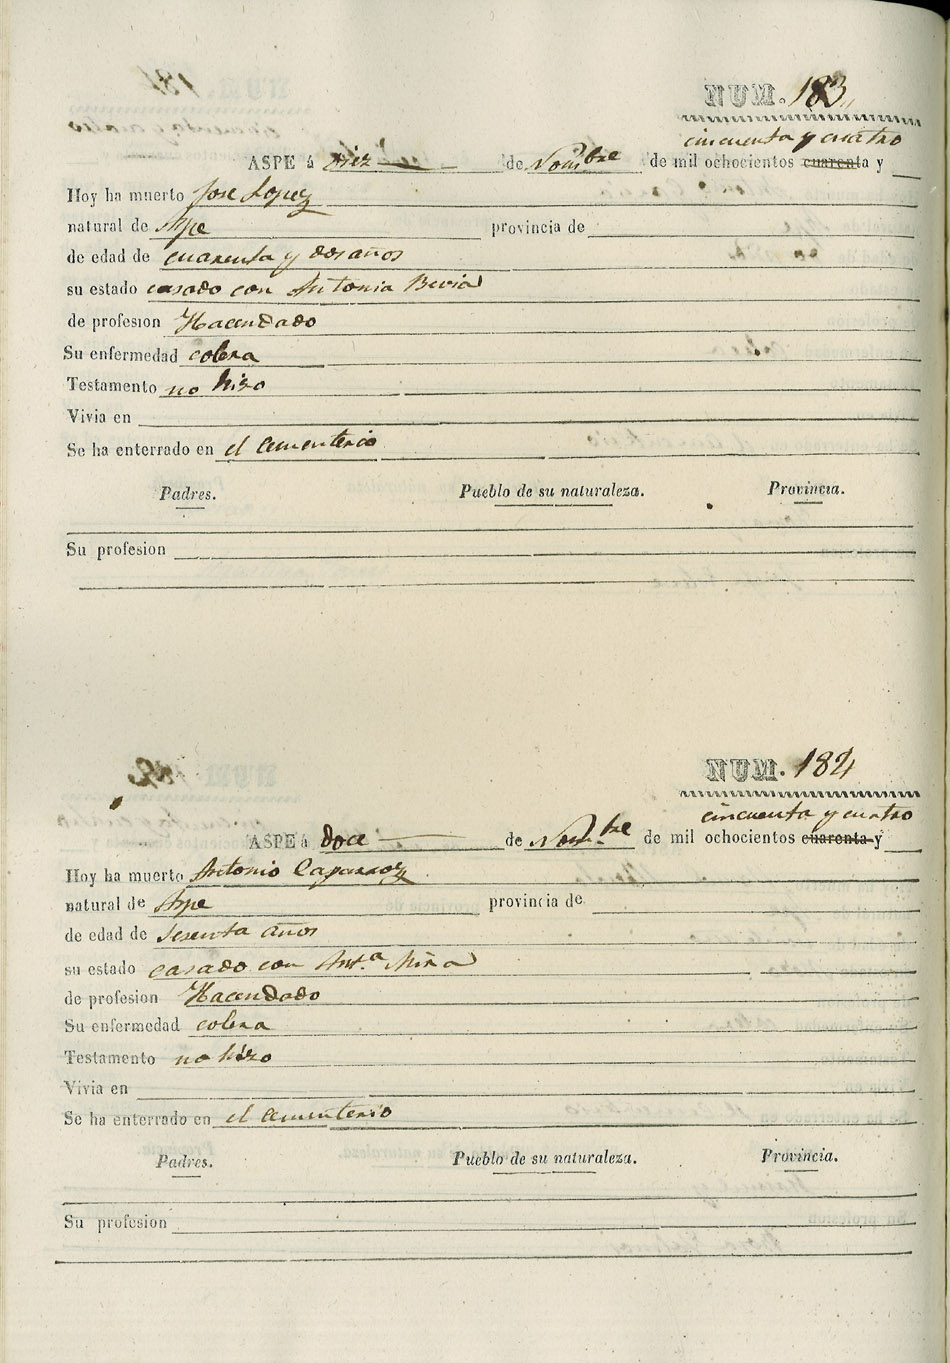 NUM. 183
cincuenta y cuatro
ASPE á diez de Nombre de mil ochocientos cuarenta y
Hoy ha muerto Jose Lopez
natural de Aspe provincia de
de edad de cuarenta y dos años
su estado casado con Antonia Bevia
de profesion Hacendado
Su enfermedad colera
Testamento no hizo
Vivia en
Se ha enterrado en el cementerio
Padres. Pueblo de su naturaleza. Provincia.
Su profesion
NUM. 184
cincuenta y cuatro
ASPE á doce de Nombre de mil ochocientos cuarenta y
Hoy ha muerto Antonio Caparroz
natural de Aspe provincia de
de edad de sesenta años
su estado casado con Ant.a Mira
de profesion Hacendado
Su enfermedad colera
Testamento no hizo
Vivia en
Se ha enterrado en el cementerio
Padres. Pueblo de su naturaleza. Provincia.
Su profesion